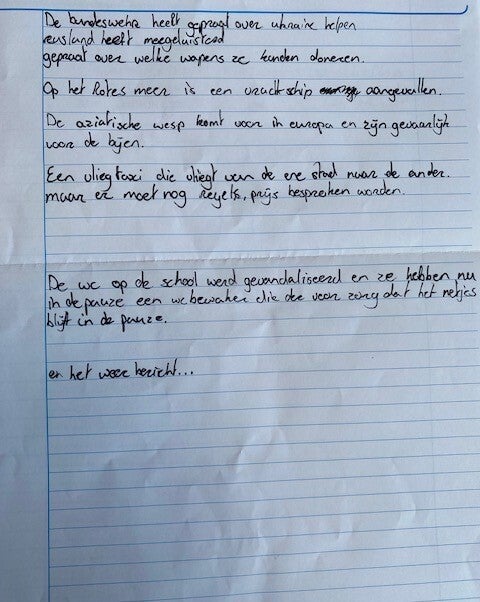 De bundeswehr heeft gepraat over ukraine helpen
rusland heeft meegeluisterd
gepraat over welke wapens ze kunden doneren.
Op het Rotes meer is een vrachtschip aangevallen.
De aziatische wesp komt voor in europa en zijn gevaarlijk
voor de bijen.
Een vliegtaxi die vliegt van de ene stad naar de ander.
maar er moet nog regels, prijs besproken worden.
De wc op de school werd gevandaliseerd en ze hebben nu
in de pauze een wc bewaker die der voor zorg dat het netjes
blijft in de pauze.
en het weer bericht...